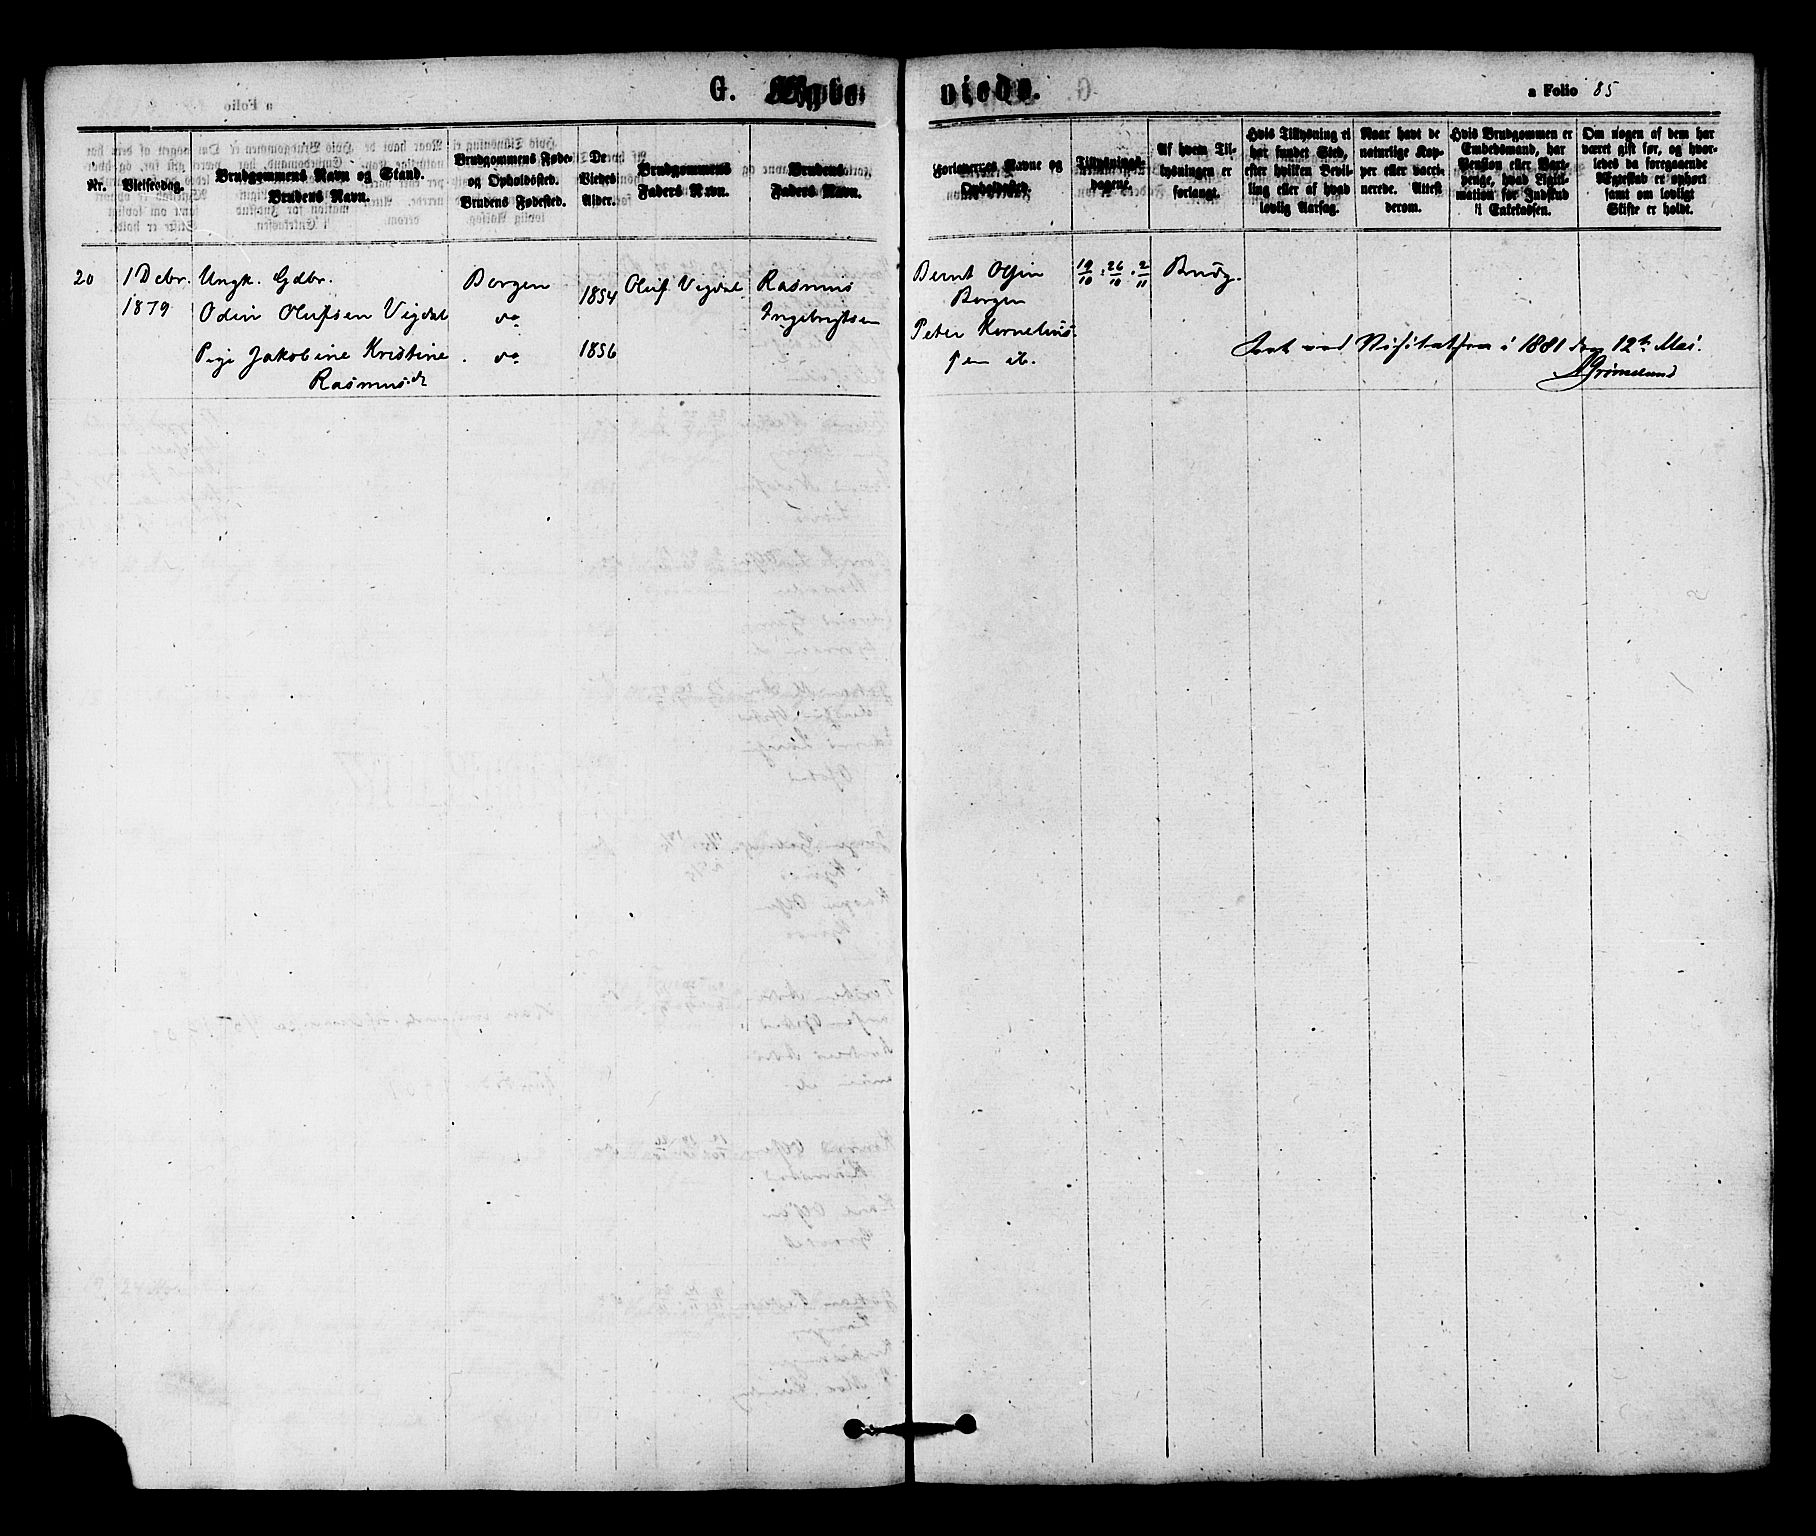 G. Ægte- viede.
a Folio 85
Nr.
Vielsesdag.
Brudgommens Navn og Stand.
Brudens Navn.
Brudgommens Føde-
og Opholdssted.
Brudens Fødested.
De
Viedes
Alder.
Brudgommens
Faders Navn.
Brudens
Faders Navn.
Forlovernes Navne og
Opholdssted.
Tillysnings-
dagene.
Af hvem Til-
lysningen er
forlangt.
Hvis Tillysning ei
har fundet Sted,
efter hvilken Bevil-
ling eller af hvad
lovlig Aarsag.
Naar havt de
naturlige Kop-
per eller vacci-
nerede. Attest
derom.
Hvis Brudgommen er
Embedsmand, har
Pension eller Vart-
penge, hvad Legiti-
mation for Indskud
i Enkekassen.
Om nogen af dem har
været gift før, og hvor-
ledes da foregaaende
Ægteskab er ophørt
samt om lovligt
Skifte er holdt.
20
1 Debr.
1879
Ungk. Gdbr.
Odin Olufsen Vigdal
Pige Jakobine Kristine
Rasmusdt
Borgen
do
do
1854
1856
Oluf Vigdal
Rasmus
Ingebrigtsen
Bernt Olsen
Borgen
Peter Kornelius
sen ib.
19/10 : 26/10 . 2/11
Brudg.
Seet ved Visitatsen i 1881 den 12te Mai.
Grønnelund